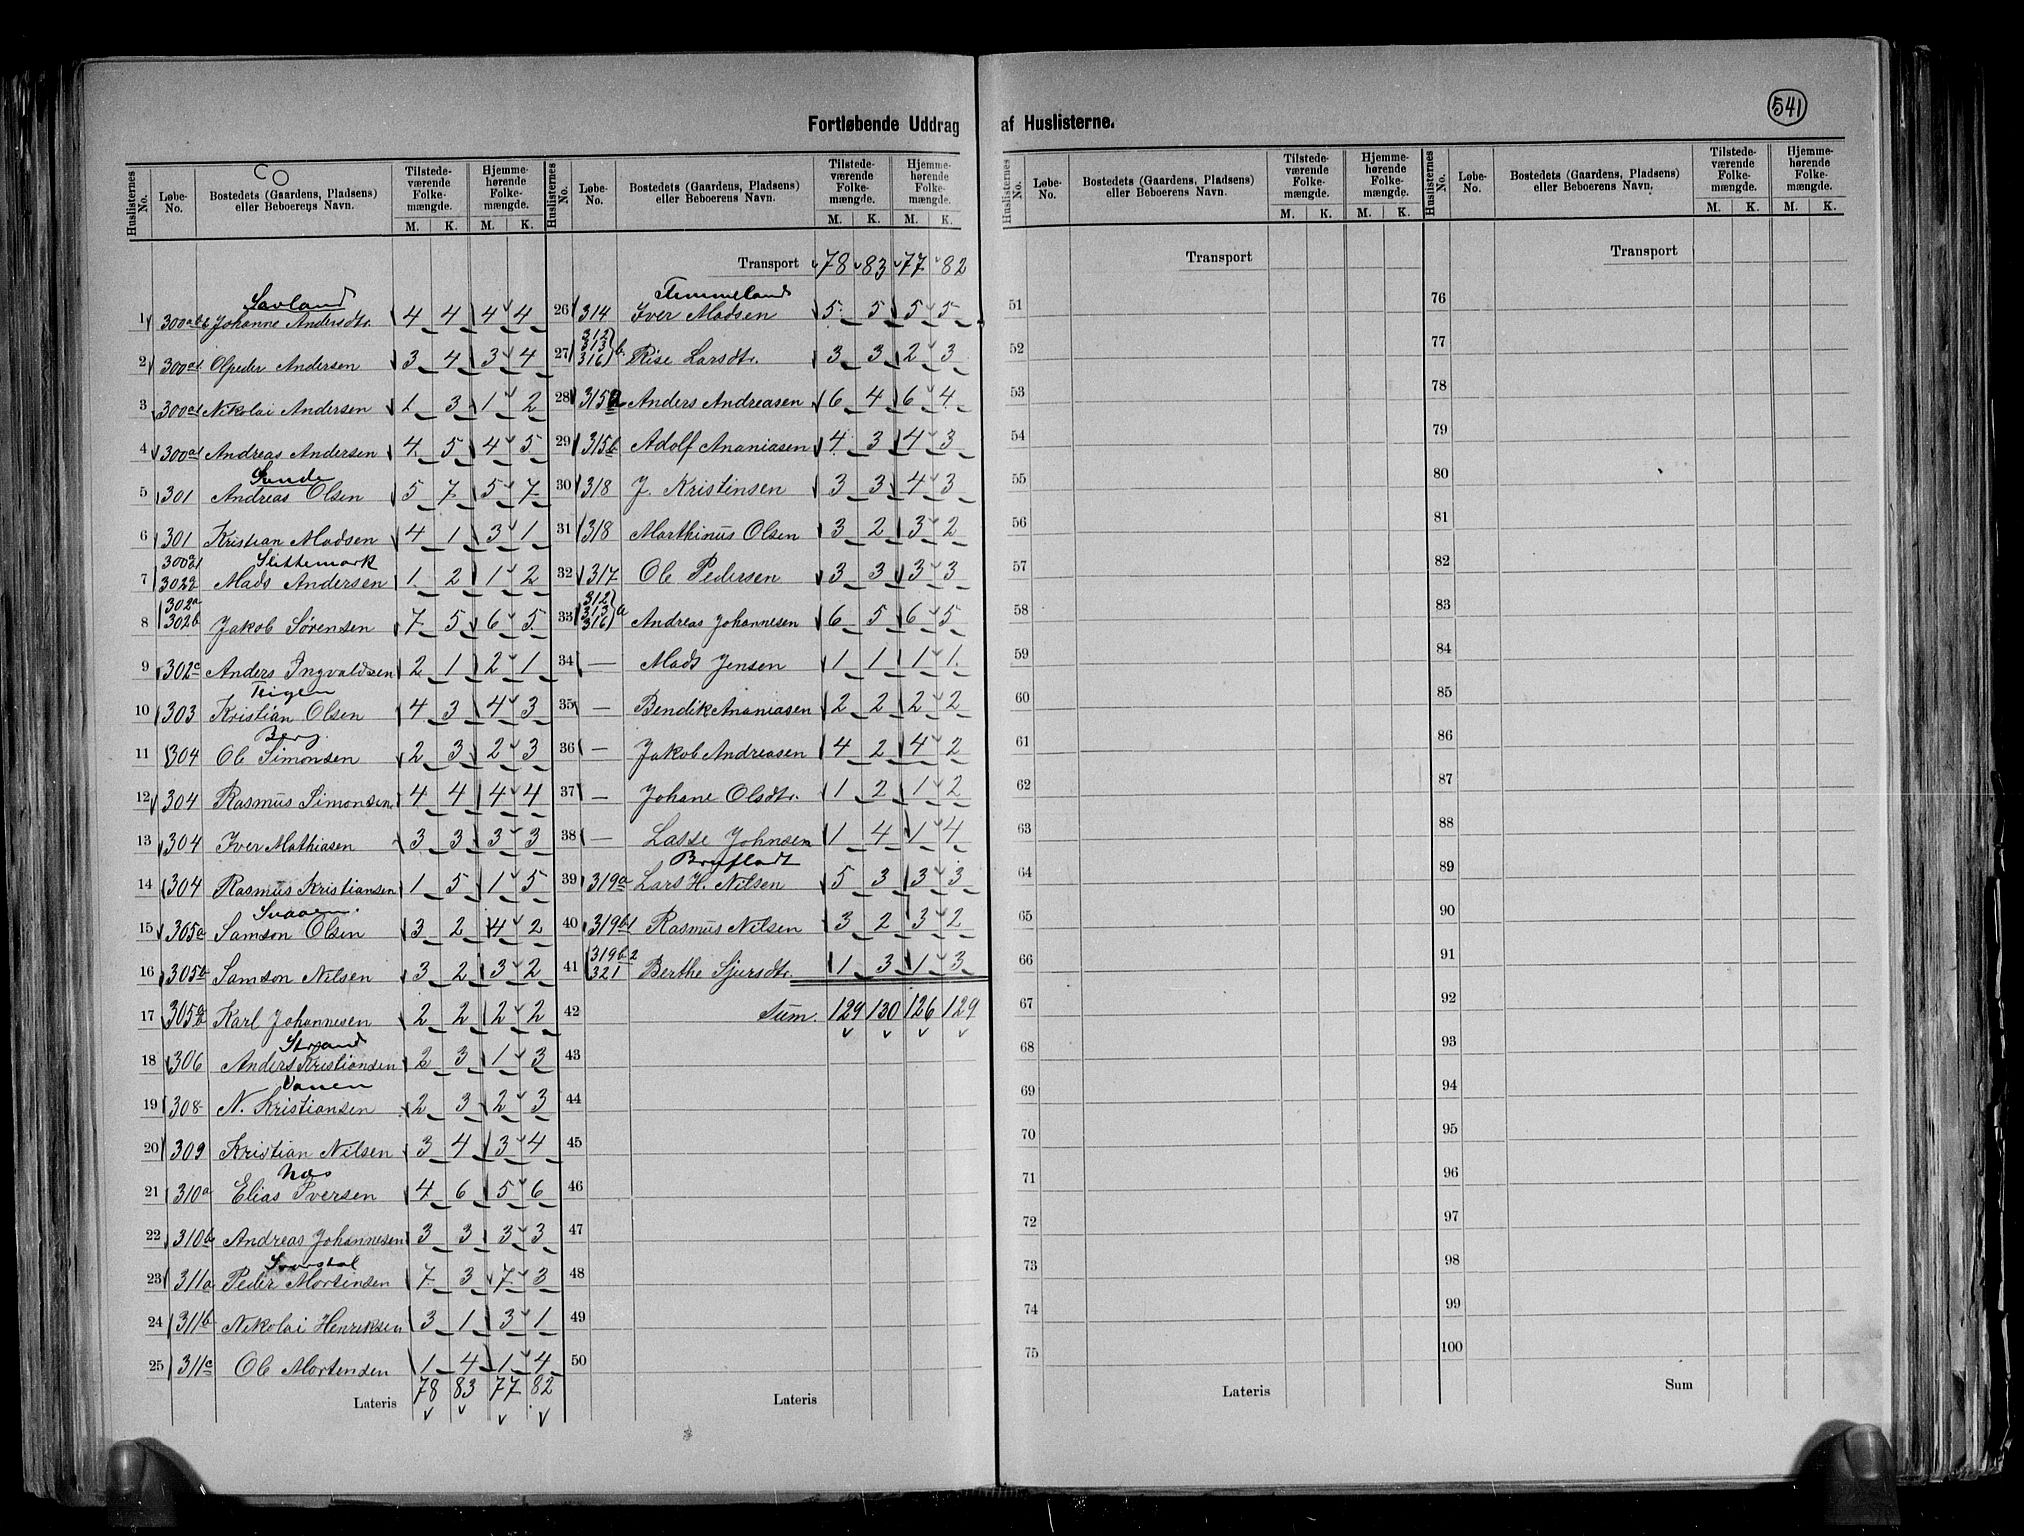 541
Fortløbende Uddrag af Huslisterne.
Huslisternes No. Løbe-No. Bostedets (Gaardens, Pladsens) eller Beboerens Navn. Tilstede-værende Folke-mængde. M. K. Hjemme-hørende Folke-mængde. M. K.
Savland
1 300 Johanne Andersdtr. 4 4 4 4
2 300a1 Olpeder Andersen 3 4 3 4
3 300a1 Nikolai Andersen 1 3 1 2
4 300a1 Andreas Andersen 4 5 4 5
Sunde
5 301 Andreas Olsen 5 7 5 7
6 301 Kristian Madsen 4 1 3 1
Slettemark
7 3022 Mads Andersen 1 2 1 2
302a
8 302b Jakob Sørensen 7 5 6 5
9 302c Anders Ingvaldsen 2 1 2 1
Teigen
10 303 Kristian Olsen 4 3 4 3
Berg
11 304 Ole Simonsen 2 3 2 3
12 304 Rasmus Simonsen 4 4 4 4
13 304 Iver Mathiasen 3 3 3 3
14 304 Rasmus Kristiansen 1 5 1 5
Svaaen.
15 305a Samson Olsen 3 2 4 2
16 305b Samson Nilsen 3 2 3 2
17 305 Karl Johannesen 2 2 2 2
Strand
18 306 Anders Kristiansen 2 3 1 3
Vanen
19 308 N. Kristiansen 2 3 2 3
20 309 Kristian Nilsen 3 4 3 4
Næs
21 310a Elias Iversen 4 6 5 6
22 310b Andreas Johannesen 3 3 3 3
23 311a Peder Mortensen 7 3 7 3
24 311b Nikolai Henriksen 3 1 3 1
25 311c Ole Mortensen 1 4 1 4
Lateris 78 83 77 82
Huslisternes No. Løbe-No. Bostedets (Gaardens, Pladsens) eller Beboerens Navn. Tilstede-værende Folke-mængde. M. K. Hjemme-hørende Folke-mængde. M. K.
Transport 78 83 77 82
Timmeland
26 314 Iver Madsen 5 5 5 5
312
313
27 316 b. Rise Larsdtr. 3 3 2 3
28 315a Anders Andreasen 6 4 6 4
29 315b Adolf Ananiasen 4 3 4 3
30 318 J. Kristensen 3 3 4 3
31 318 Marthinus Olsen 3 2 3 2
32 317 Ole Pedersen 3 3 3 3
312
313
33 316 a Andreas Johannesen 6 5 6 5
34 — Mads Jensen 1 1 1 1
35 — Bendik Ananiasen 2 2 2 2
36 — Jakob Andreasen 4 2 4 2
37 — Johane Olsdtr. 1 2 1 2
38 — Lasse Johnsen 1 4 1 4
Bryfladt
39 319a Lars H. Nilsen 5 3 3 3
40 319b1 Rasmus Nilsen 3 2 3 2
319b2
41 321 Berthe Sjursdtr. 1 3 1 3
42 Sum. 129 130 126 129
43
44
45
46
47
48
49
50
Lateris
Huslisternes No. Løbe-No. Bostedets (Gaardens, Pladsens) eller Beboerens Navn. Tilstede-værende Folke-mængde. M. K. Hjemme-hørende Folke-mængde. M. K.
Transport
51
52
53
54
55
56
57
58
59
60
61
62
63
64
65
66
67
68
69
70
71
72
73
74
75
Lateris
Huslisternes No. Løbe-No. Bostedets (Gaardens, Pladsens) eller Beboerens Navn. Tilstede-værende Folke-mængde. M. K. Hjemme-hørende Folke-mængde. M. K.
Transport
76
77
78
79
80
81
82
83
84
85
86
87
88
89
90
91
92
93
94
95
96
97
98
99
100
Sum